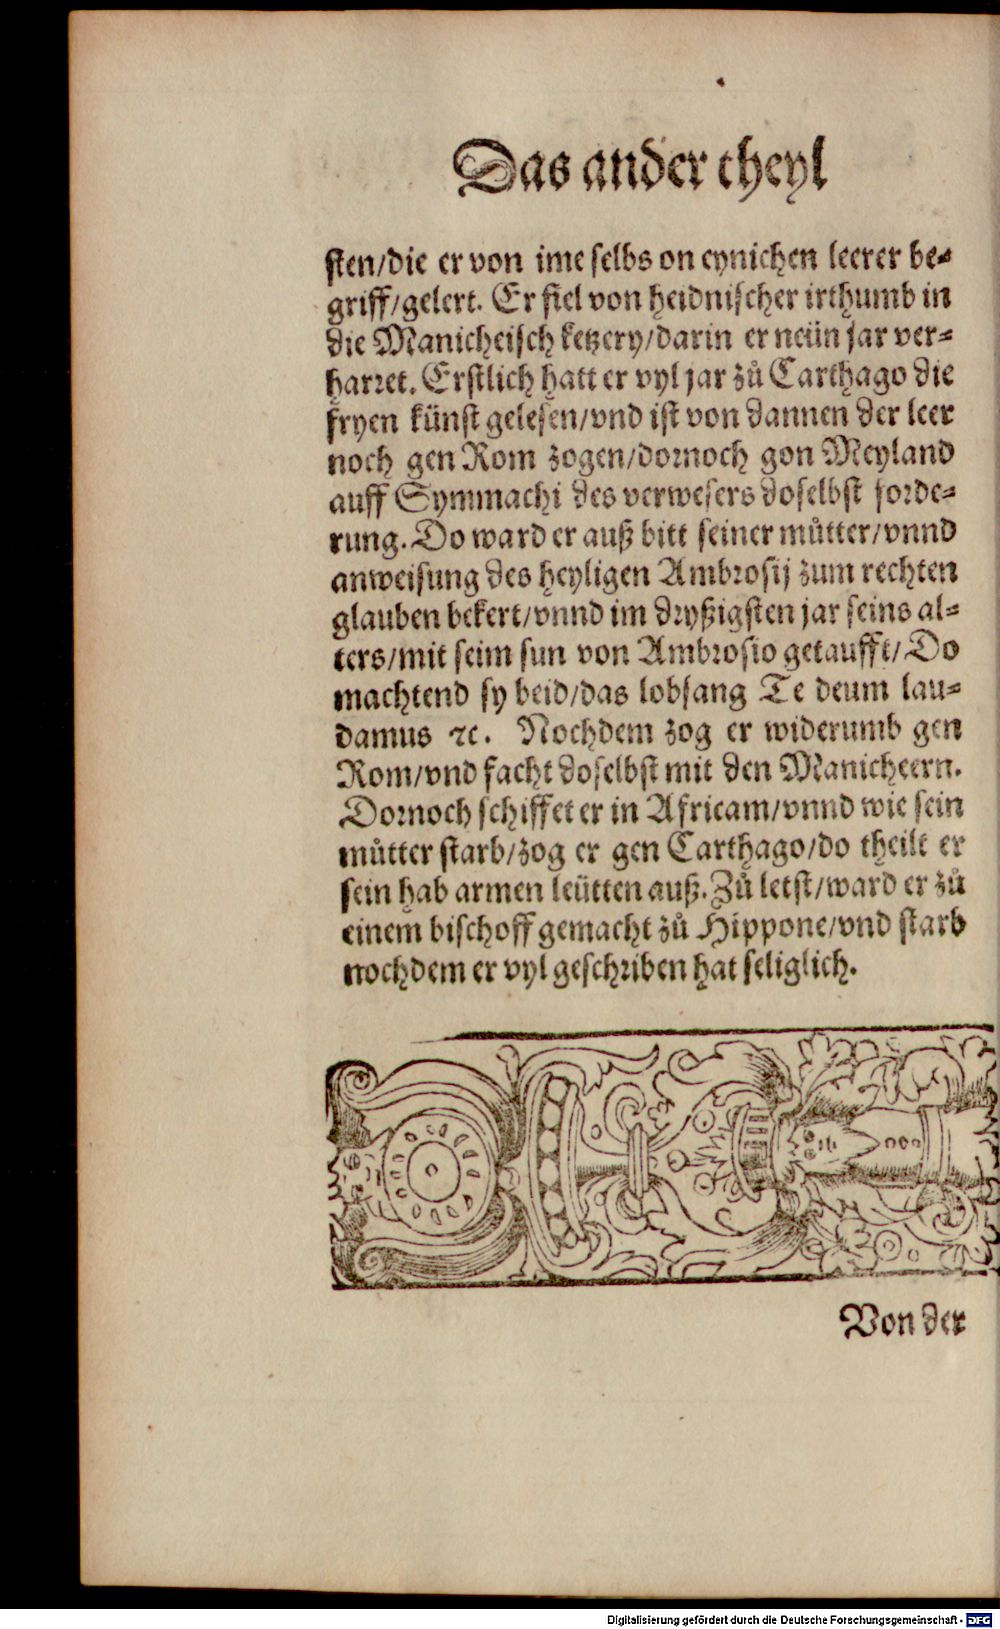 Das ander theyl
sten/die er von ime selbs on eynichen leerer be⸗
griff/gelert. Er fiel von heidnischer irthumb in
die Manicheisch ketzery/darin er neün jar ver⸗
harret. Erstlich hatt er vyl jar zů Carthago die
fryen künst gelesen/vnd ist von dannen der leer
noch gen Rom zogen/dornoch gon Meyland
auff Symmachi des verwesers doselbst forde⸗
rung. Do ward er auß bitt seiner můtter/vnnd
anweisung des heyligen Ambrosij zum rechten
glauben bekert/vnnd im dryßigsten jar seins al⸗
ters/mit seim sun von Ambrosio getaufft/Do
machtend sy beid/das lobsang Te deum lau⸗
damus ⁊c. Nochdem zog er widerumb gen
Rom/vnd facht doselbst mit den Manicheern.
Dornoch schiffet er in Africam/vnnd wie sein
můtter starb/zog er gen Carthago/do theilt er
sein hab armen leütten auß. Zů letst/ward er zů
einem bischoff gemacht zů Hippone/vnd starb
nochdem er vyl geschriben hat seliglich.
Von der
Digitalisierung gefördert durch die Deutsche Forschungsgemeinschaft - DFG